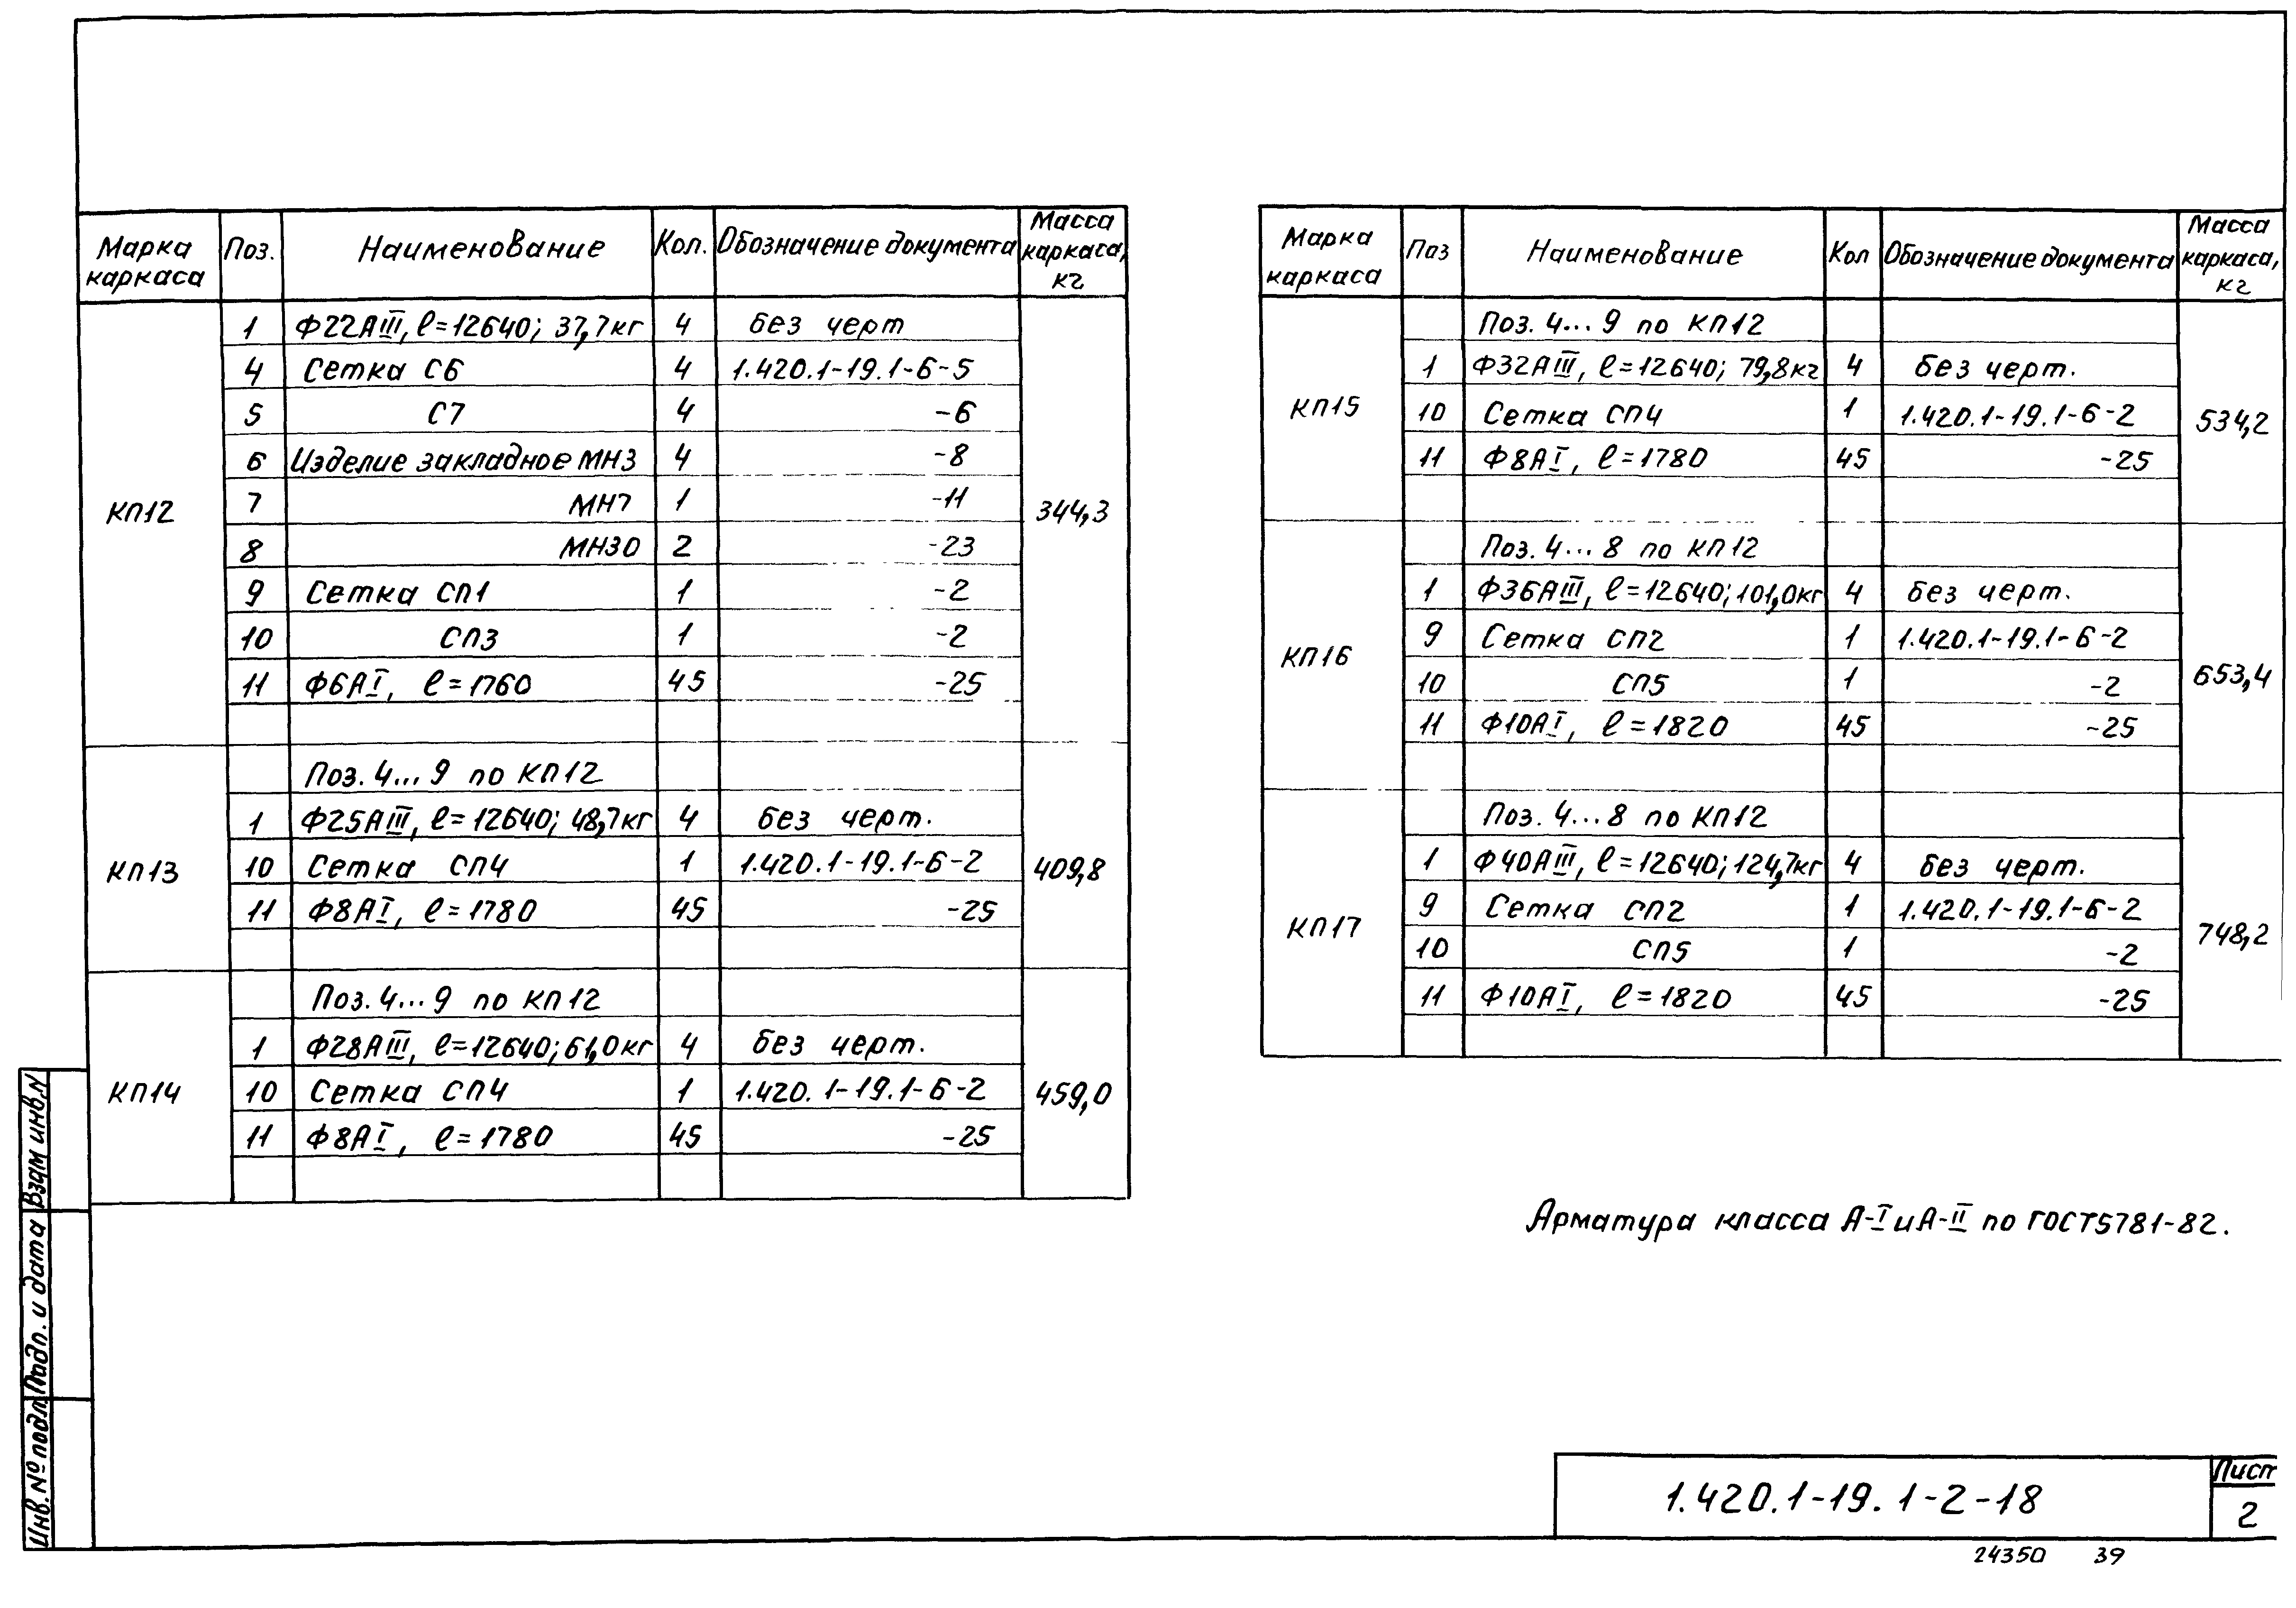 Марка каркаса | Поз. | Наименование | Кол. | Обозначение документа | Масса каркаса, кг
КП12 | 1 | Ф22АIII, ℓ=12640; 37,7кг | 4 | без черт | 344,3
4 | Сетка С6 | 4 | 1.420.1-19.1-6-5
5 | С7 | 4 | -6
6 | Изделие закладное МН3 | 4 | -8
7 | МН7 | 1 | -11
8 | МН30 | 2 | -23
9 | Сетка СП1 | 1 | -2
10 | СП3 | 1 | -2
11 | Ф6АI, ℓ=1760 | 45 | -25
КП13 | Поз. 4...9 по КП12 | 409,8
1 | Ф25АIII, ℓ=12640; 48,7кг | 4 | без черт.
10 | Сетка СП4 | 1 | 1.420.1-19.1-6-2
11 | Ф8АI, ℓ=1780 | 45 | -25
КП14 | Поз. 4...9 по КП12 | 459,0
1 | Ф28АIII, ℓ=12640; 61,0кг | 4 | без черт.
10 | Сетка СП4 | 1 | 1.420.1-19.1-6-2
11 | Ф8АI, ℓ=1780 | 45 | -25
Марка каркаса | Поз | Наименование | Кол | Обозначение документа | Масса каркаса, кг
КП15 | Поз. 4...9 по КП12 | 534,2
1 | Ф32АIII, ℓ=12640; 79,8кг | 4 | без черт.
10 | Сетка СП4 | 1 | 1.420.1-19.1-6-2
11 | Ф8АI, ℓ=1780 | 45 | -25
КП16 | Поз. 4...8 по КП12 | 653,4
1 | Ф36АIII, ℓ=12640; 101,0кг | 4 | без черт.
9 | Сетка СП2 | 1 | 1.420.1-19.1-6-2
10 | СП5 | 1 | -2
11 | Ф10АI, ℓ=1820 | 45 | -25
КП17 | Поз. 4...8 по КП12 | 748,2
1 | Ф40АIII, ℓ=12640; 124,7кг | 4 | без черт.
9 | Сетка СП2 | 1 | 1.420.1-19.1-6-2
10 | СП5 | 1 | -2
11 | Ф10АI, ℓ=1820 | 45 | -25
Арматура класса А-I и А-II по ГОСТ5781-82.
Инв. № подл. | Подп. и дата | Взам инв.N
1.420.1-19.1-2-18
Лист
2
24350 39